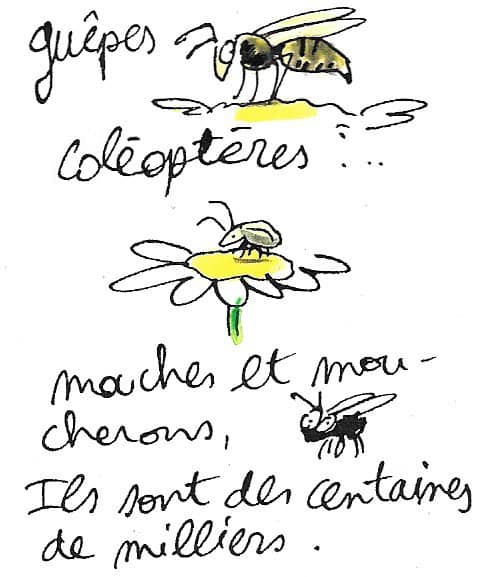 guêpes
coléoptères :...
mouches et mou-
cherons,
Ils sont des centaines
de milliers.